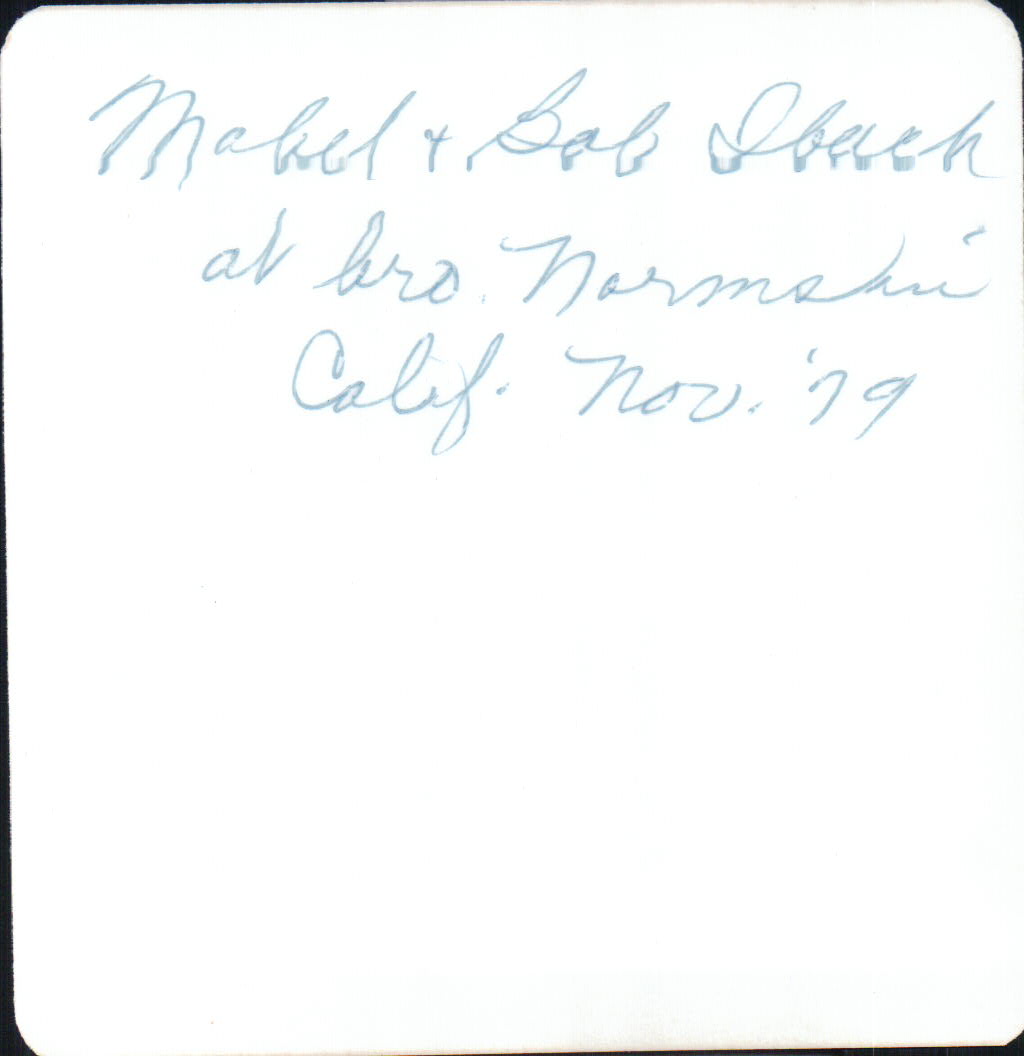 Mabel + Bob Ibach
at bro. Norms in
Calif. Nov. '79